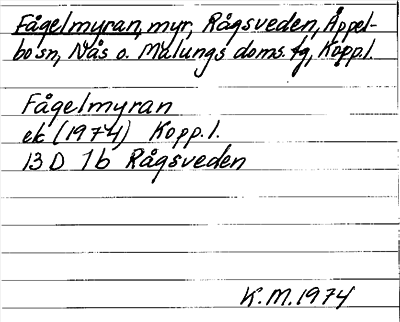 Fågelmyran, myr, Rågsveden, Äppel-
bo sn, Nås o. Malungs doms. tg, Kopp.l.
Fågelmyran
ek (1974) Kopp.l.
13 D 7b Rågsveden
K.M. 1974